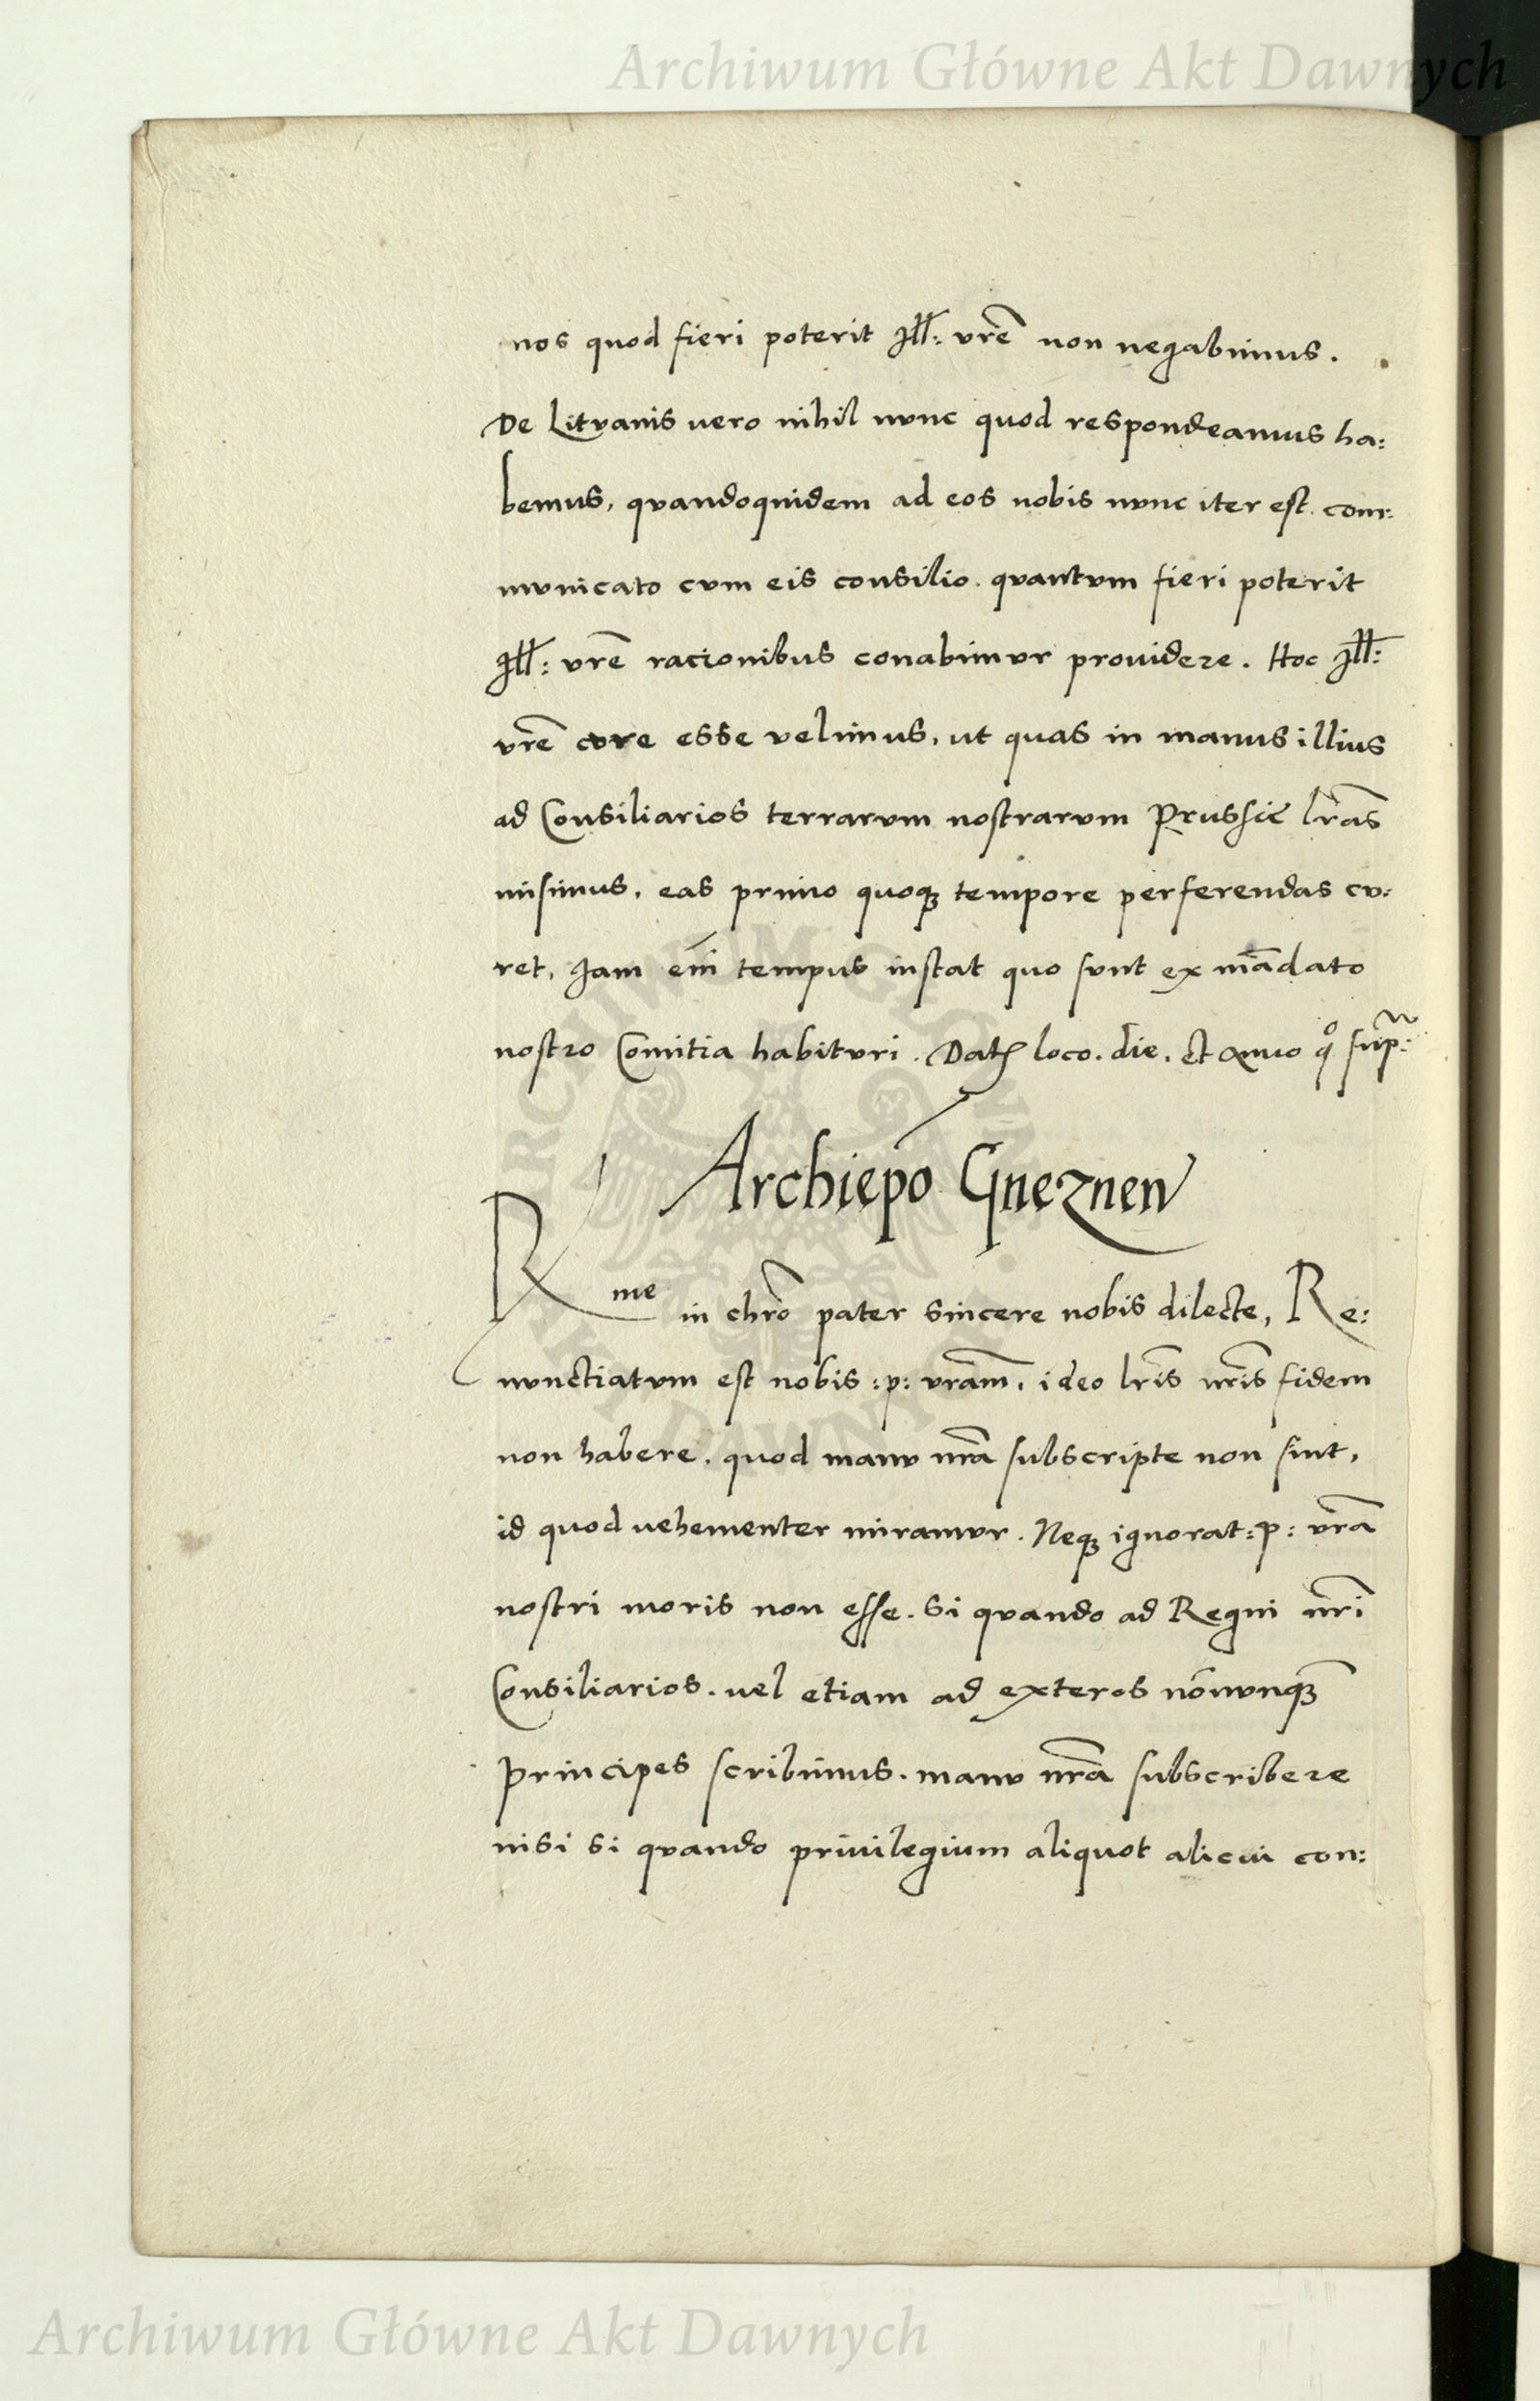 Archiwum Główne Akt Dawnych
nos quod fieri poterit Ill: vrẽ non negabimus.
De Litvanis uero nihil nvnc quod respondeamus ha:
bemus, qvandoquidem ad eos nobis nvnc iter est. com:
mvnicato cvm eis consilio. qvantvm fieri poterit
Ill: vrẽ racionibus conabimvr prouidere. Hoc Ill:
vrẽ cvre esse velimus, ut quas in manus illius
ad Consiliarios terrarvm nostrarvm Prussie lr̃as
misimus, eas primo quoqꝫ tempore perferendas cv:
ret, Jam em̃ tempus instat quo svnt ex mãdato
nostro Comitia habitvri. Datꝭ loco. die. et Anno qͦ sup̃:
Archiepõ Gneznen
Rme in chrõ pater sincere nobis dilecte, Re:
nvnctiatvm est nobis :p: vram̃, ideo lr̃is nr̃is fidem
non habere. quod manv nr̃a subscripte non sint,
id quod uehementer miramvr. Neqꝫ ignorat :p: vr̃a
nostri moris non esse. Si qvando ad Regni nr̃i
Consiliarios. uel etiam ad exteros nõnvnqꝫ
principes scribimus. manv nr̃a subscribere
nisi si qvando priuilegium aliquot alicui con:
Archiwum Główne Akt Dawnych